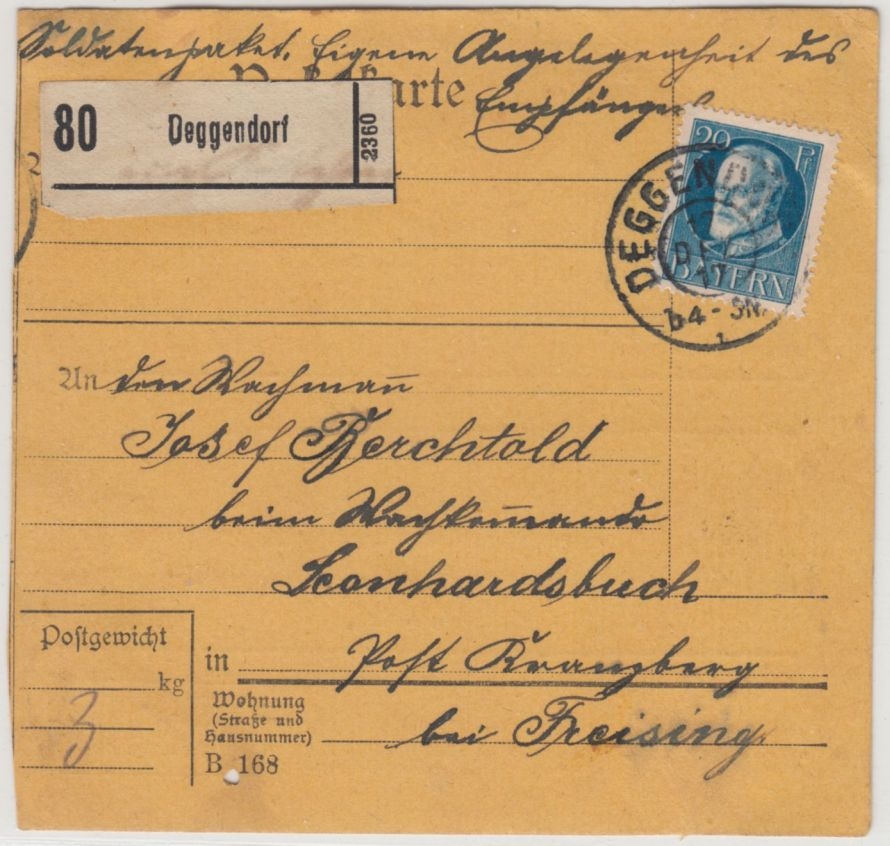 Soldatenpaket. Eigene Angelegenheit des
Empfängers
arte
80 Deggendorf 2360
20 Pf
BAYERN
DEGGEN
17
b4-5N.
1
An den Wachmañ
Josef Berchtold
beim Wachkom̄ando
Leonhardsbuch
Postgewicht
kg
3
in Post Kranzberg
Wohnung
(Straße und
Hausnummer)
bei Freising.
B 168